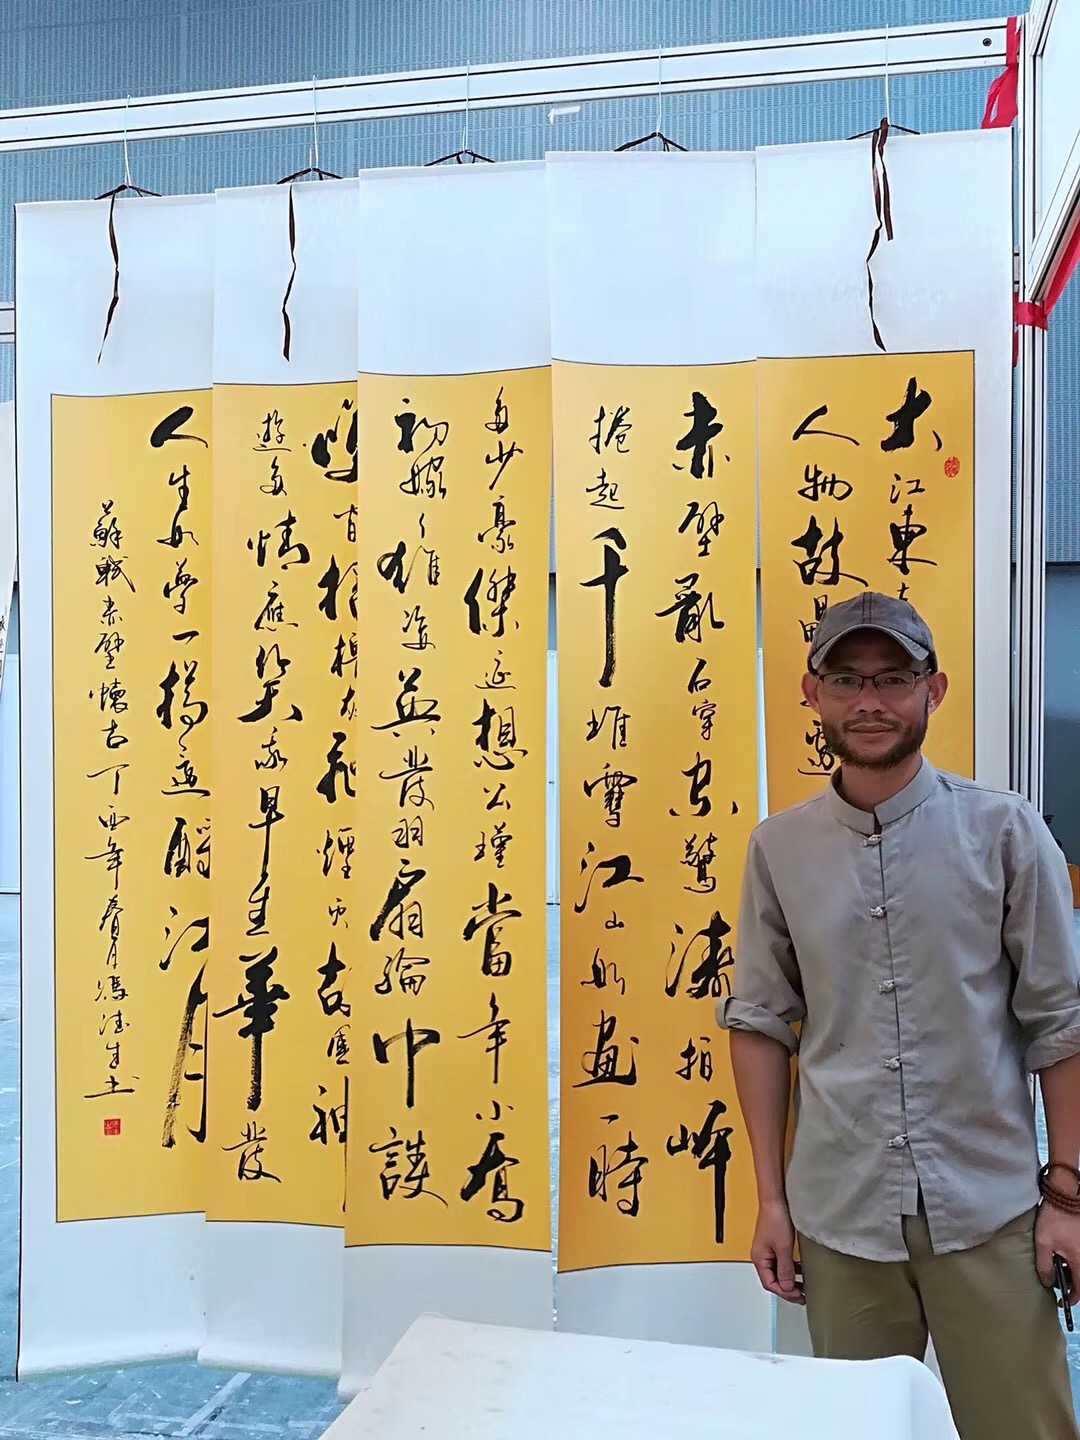 大江東去
人物故壘邊
赤壁亂石穿空驚濤拍岸
捲起千堆雪江山如畫一時
多少豪傑遙想公瑾當年小喬
初嫁了雄姿英發羽扇綸巾談
間檣櫓灰飛煙滅故國神
遊多情應笑我早生華發
人生如夢一樽還酹江月
蘇軾赤壁懷古丁酉年春月馮生書